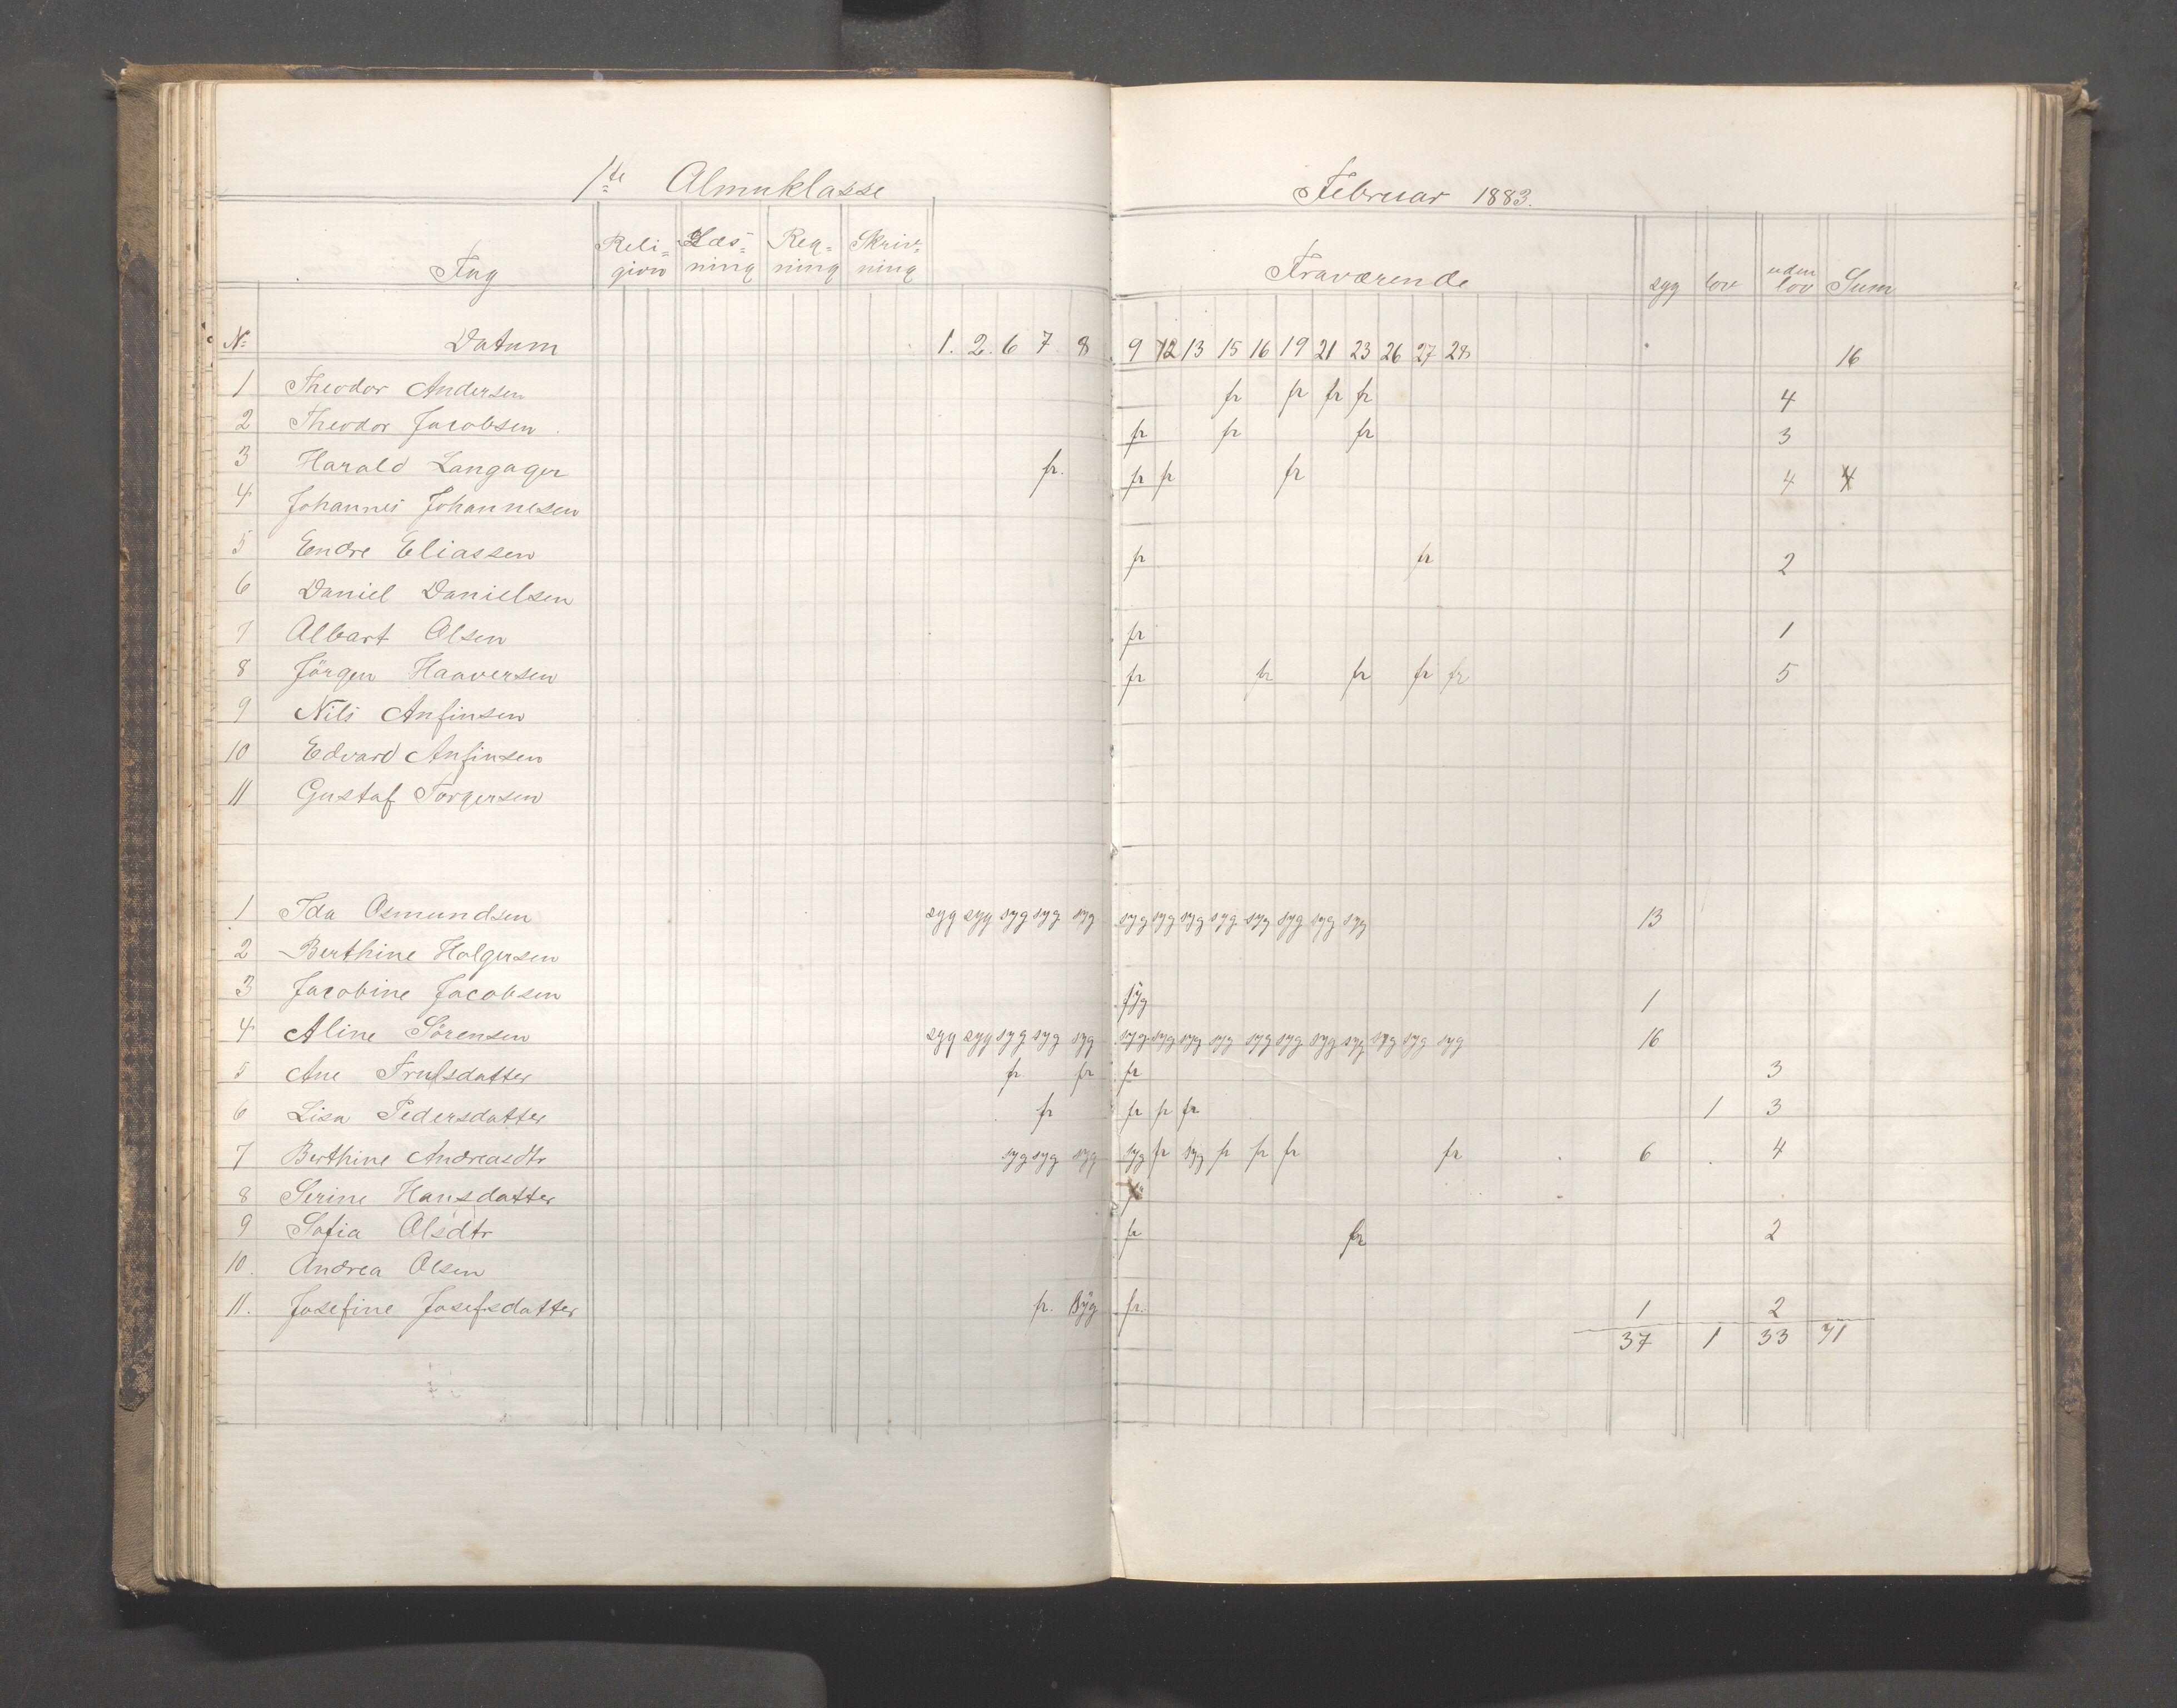 1ste Almuklasse
Februar 1883.
Fag Reli= Læs= Reg= Skriv= Fraværende syg lov uden Sum
gion ning ning ning lov
No Datum 1. 2. 6 7 8 9 12 13 15 16 19 21 23 26 27 28 16
1 Theodor Andersen fr fr fr fr 4
2 Theodor Jacobsen fr fr fr 3
3 Harald Langager fr. fr fr fr 4
4 Johannes Johannesen
5 Endre Eliassen fr fr 2
6 Daniel Danielsen
7 Albart Olsen fr 1
8 Jörgen Haaversen fr fr fr fr fr 5
9 Nils Anfinsen
10 Edvard Anfinsen
11 Gustaf Torgersen
1 Ida Osmundsen syg syg syg syg syg syg syg syg syg syg syg syg syg 13
2 Berthine Holgersen
3 Jacobine Jacobsen syg 1
4 Aline Sörensen syg syg syg syg syg syg syg syg syg syg syg syg syg syg syg syg 16
5 Ane Trulsdatter fr fr fr 3
6 Lisa Pedersdatter fr fr fr fr 1 3
7 Berthine Andreasdtr syg syg syg syg fr syg fr fr fr fr 6 4
8 Serine Hansdatter
9 Sofia Olsdtr fr fr 2
10. Andrea Olsen
11. Josefine Josefsdatter fr. syg fr. 1 2
37 1 33 71